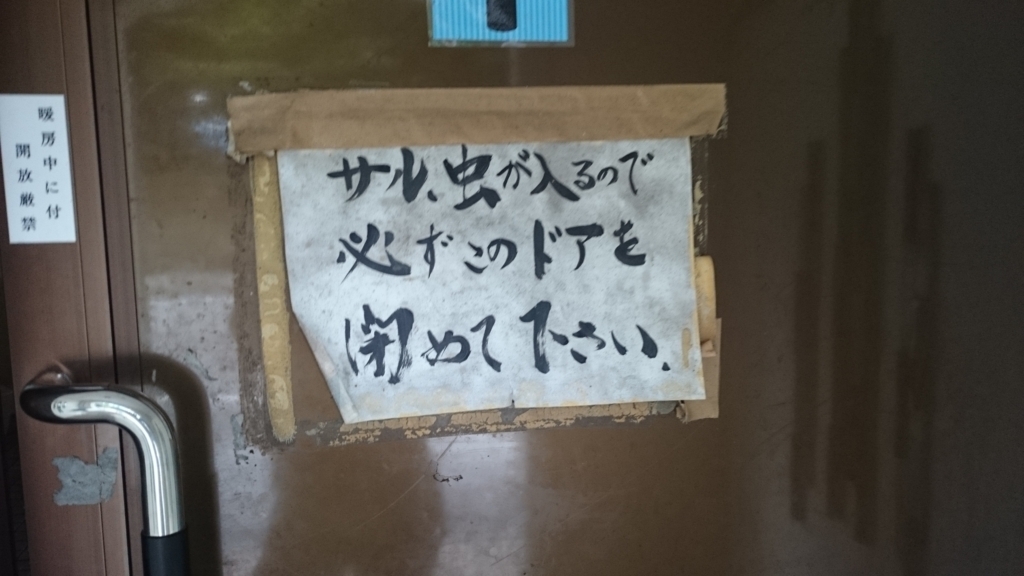 サル、虫が入るので
必ずこのドアを
閉めて下さい.
暖房中に付
開放厳禁